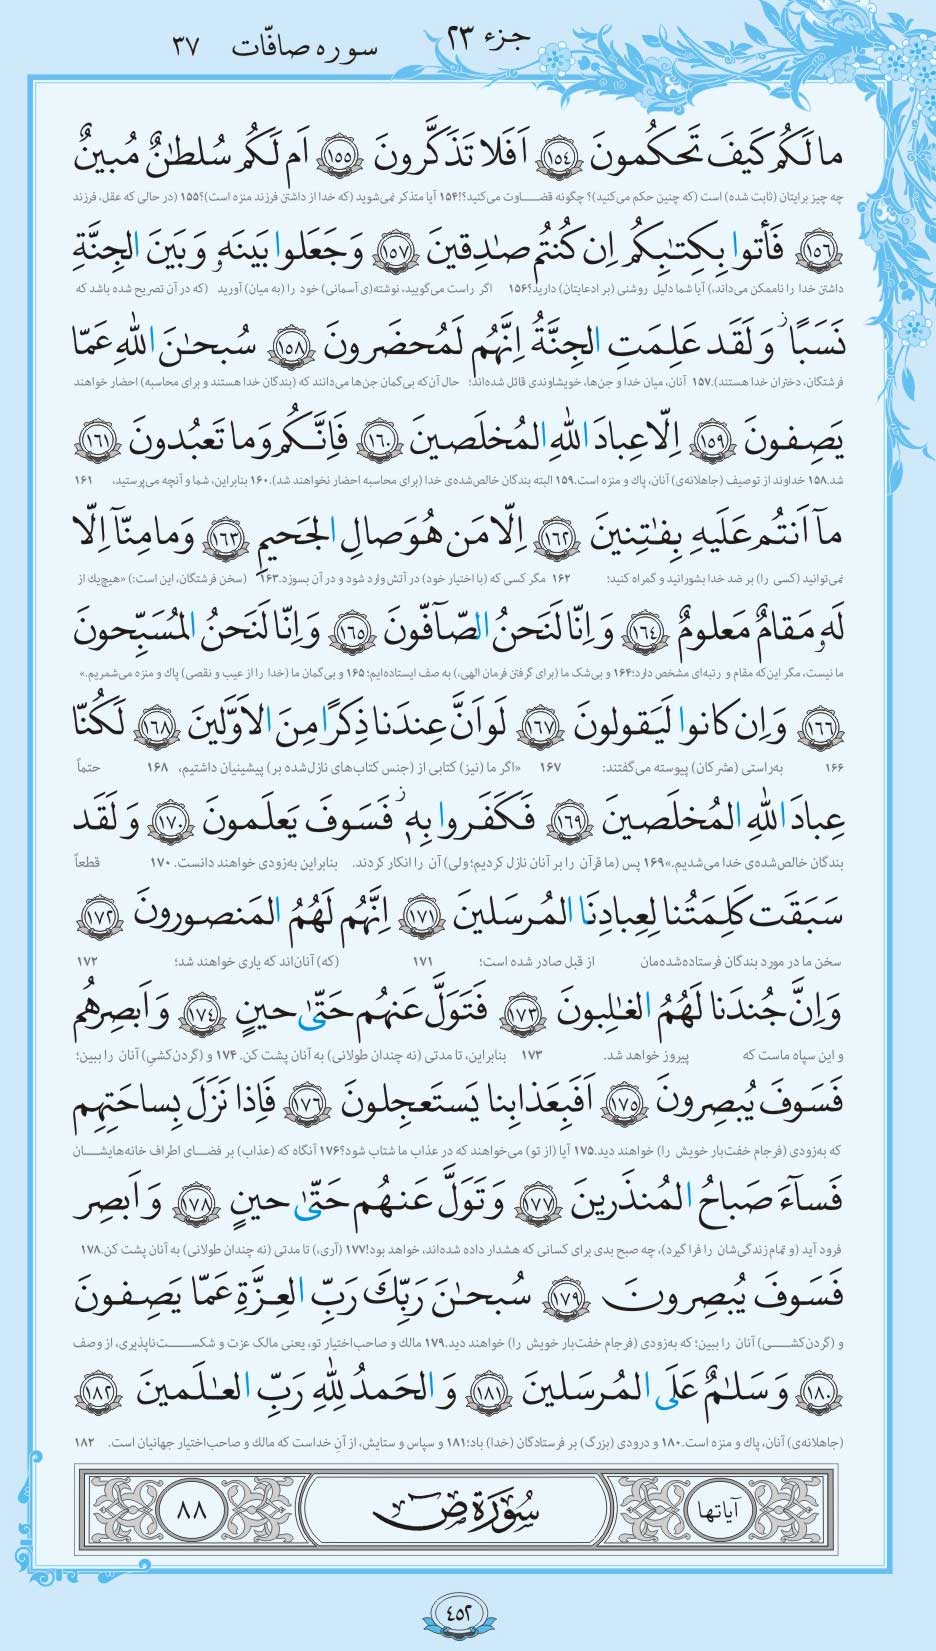 جزء ۲۳
سوره صافّات ۳۷
ما لَكُم كَيفَ تَحكُمونَ ﴿١٥٤﴾ اَفَلا تَذَكَّرونَ ﴿١٥٥﴾ اَم لَكُم سُلطٰنٌ مُبينٌ
چه چیز برایتان (ثابت شده) است (که چنین حکم می‌کنید)؟ چگونه قضاوت می‌کنید؟!۱۵۴ آیا متذکر نمی‌شوید (که خدا از داشتن فرزند منزه است)؟۱۵۵ (در حالی که عقل، فرزند
﴿١٥٦﴾ فَأتوا بِكِتٰبِكُم اِن كُنتُم صٰدِقينَ ﴿١٥٧﴾ وَ جَعَلوا بَينَهٗ وَ بَينَ الجِنَّةِ
داشتن خدا را ناممکن می‌داند،) آیا شما دلیل روشنی (بر ادعایتان) دارید؟۱۵۶ اگر راست می‌گویید، نوشته‌(ی آسمانی) خود را (به میان) آورید (که در آن تصریح شده باشد که
نَسَبًا ز وَ لَقَد عَلِمَتِ الجِنَّةُ اِنَّهُم لَمُحضَرونَ ﴿١٥٨﴾ سُبحٰنَ اللهِ عَمّا
فرشتگان، دختران خدا هستند).۱۵۷ آنان، میان خدا و جن‌ها، خویشاوندی قائل شده‌اند؛ حال آن‌که بی‌گمان جن‌ها می‌دانند که (بندگان خدا هستند و برای محاسبه) احضار خواهند
يَصِفونَ ﴿١٥٩﴾ اِلّا عِبادَ اللهِ المُخلَصينَ ﴿١٦٠﴾ فَاِنَّكُم وَ ما تَعبُدونَ ﴿١٦١﴾
شد.۱۵۸ خداوند از توصیف (جاهلانه‌ی) آنان، پاک و منزه است.۱۵۹ البته بندگان خالص‌شده‌ی خدا (برای محاسبه احضار نخواهند شد).۱۶۰ بنابراین، شما و آنچه می‌پرستید، ۱۶۱
ما اَنتُم عَلَيهِ بِفٰتِنينَ ﴿١٦٢﴾ اِلّا مَن هُوَ صالِ الجَحيمِ ﴿١٦٣﴾ وَ ما مِنّآ اِلّا
نمی‌توانید (کسی را) بر ضد خدا بشورانید و گمراه کنید؛ ۱۶۲ مگر کسی که (با اختیار خود) در آتش وارد شود و در آن بسوزد.۱۶۳ (سخن فرشتگان، این است:) «هیچ‌یک از
لَهٗ مَقامٌ مَعلومٌ ﴿١٦٤﴾ وَ اِنّا لَنَحنُ الصّآفّونَ ﴿١٦٥﴾ وَ اِنّا لَنَحنُ المُسَبِّحونَ
ما نیست، مگر این‌که مقام و رتبه‌ای مشخص دارد؛۱۶۴ و بی‌شک ما (برای گرفتن فرمان الهی،) به صف ایستاده‌ایم؛۱۶۵ و بی‌گمان ما (خدا را از عیب و نقصی) پاک و منزه می‌شمریم.»
﴿١٦٦﴾ وَ اِن كانوا لَيَقولونَ ﴿١٦٧﴾ لَو اَنَّ عِندَنا ذِكرًا مِنَ الاَوَّلينَ ﴿١٦٨﴾ لَكُنّا
۱۶۶ به‌راستی (مشرکان) پیوسته می‌گفتند: ۱۶۷ «اگر ما (نیز) کتابی از (جنس کتاب‌های نازل‌شده بر) پیشینیان داشتیم، ۱۶۸ حتماً
عِبادَ اللهِ المُخلَصينَ ﴿١٦٩﴾ فَكَفَروا بِهٖ ز فَسَوفَ يَعلَمونَ ﴿١٧٠﴾ وَ لَقَد
بندگان خالص‌شده‌ی خدا می‌شدیم.»۱۶۹ پس (ما قرآن را بر آنان نازل کردیم؛ ولی) آن را انکار کردند. بنابراین به‌زودی خواهند دانست. ۱۷۰ قطعاً
سَبَقَت كَلِمَتُنا لِعِبادِنَا المُرسَلينَ ﴿١٧١﴾ اِنَّهُم لَهُمُ المَنصورونَ ﴿١٧٢﴾
سخن ما در مورد بندگان فرستاده‌شده‌مان از قبل صادر شده است؛ ۱۷۱ (که) آنان‌اند که یاری خواهند شد؛ ۱۷۲
وَ اِنَّ جُندَنا لَهُمُ الغٰلِبونَ ﴿١٧٣﴾ فَتَوَلَّ عَنهُم حَتّىٰ حينٍ ﴿١٧٤﴾ وَ اَبصِرهُم
و این سپاه ماست که پیروز خواهد شد. ۱۷۳ بنابراین، تا مدتی (نه چندان طولانی) به آنان پشت کن. ۱۷۴ و (گردن‌کشیِ) آنان را ببین؛
فَسَوفَ يُبصِرونَ ﴿١٧٥﴾ اَفَبِعَذابِنا يَستَعجِلونَ ﴿١٧٦﴾ فَاِذا نَزَلَ بِساحَتِهِم
که به‌زودی (فرجام خفت‌بار خویش را) خواهند دید.۱۷۵ آیا (از تو) می‌خواهند که در عذاب ما شتاب شود؟۱۷۶ آنگاه که (عذاب) بر فضای اطراف خانه‌هایشان
فَسآءَ صَباحُ المُنذَرينَ ﴿١٧٧﴾ وَ تَوَلَّ عَنهُم حَتّىٰ حينٍ ﴿١٧٨﴾ وَ اَبصِر
فرود آید (و تمام زندگی‌شان را فرا گیرد)، چه صبح بدی برای کسانی که هشدار داده شده‌اند، خواهد بود!۱۷۷ (آری،) تا مدتی (نه چندان طولانی) به آنان پشت کن.۱۷۸
فَسَوفَ يُبصِرونَ ﴿١٧٩﴾ سُبحٰنَ رَبِّكَ رَبِّ العِزَّةِ عَمّا يَصِفونَ
و (گردن‌کشی) آنان را ببین؛ که به‌زودی (فرجام خفت‌بار خویش را) خواهند دید.۱۷۹ مالك و صاحب‌اختیار تو، یعنی مالک عزت و شکست‌ناپذیری، از وصف
﴿١٨٠﴾ وَ سَلٰمٌ عَلَى المُرسَلينَ ﴿١٨١﴾ وَ الحَمدُ لِلّٰهِ رَبِّ العٰلَمينَ ﴿١٨٢﴾
(جاهلانه‌ی) آنان، پاك و منزه است.۱۸۰ و درودی (بزرگ) بر فرستادگان (خدا) باد؛۱۸۱ و سپاس و ستایش، از آنِ خداست که مالك و صاحب‌اختیار جهانیان است. ۱۸۲
آیاتها سُورَةُ صٓ ۸۸
۴۵۲